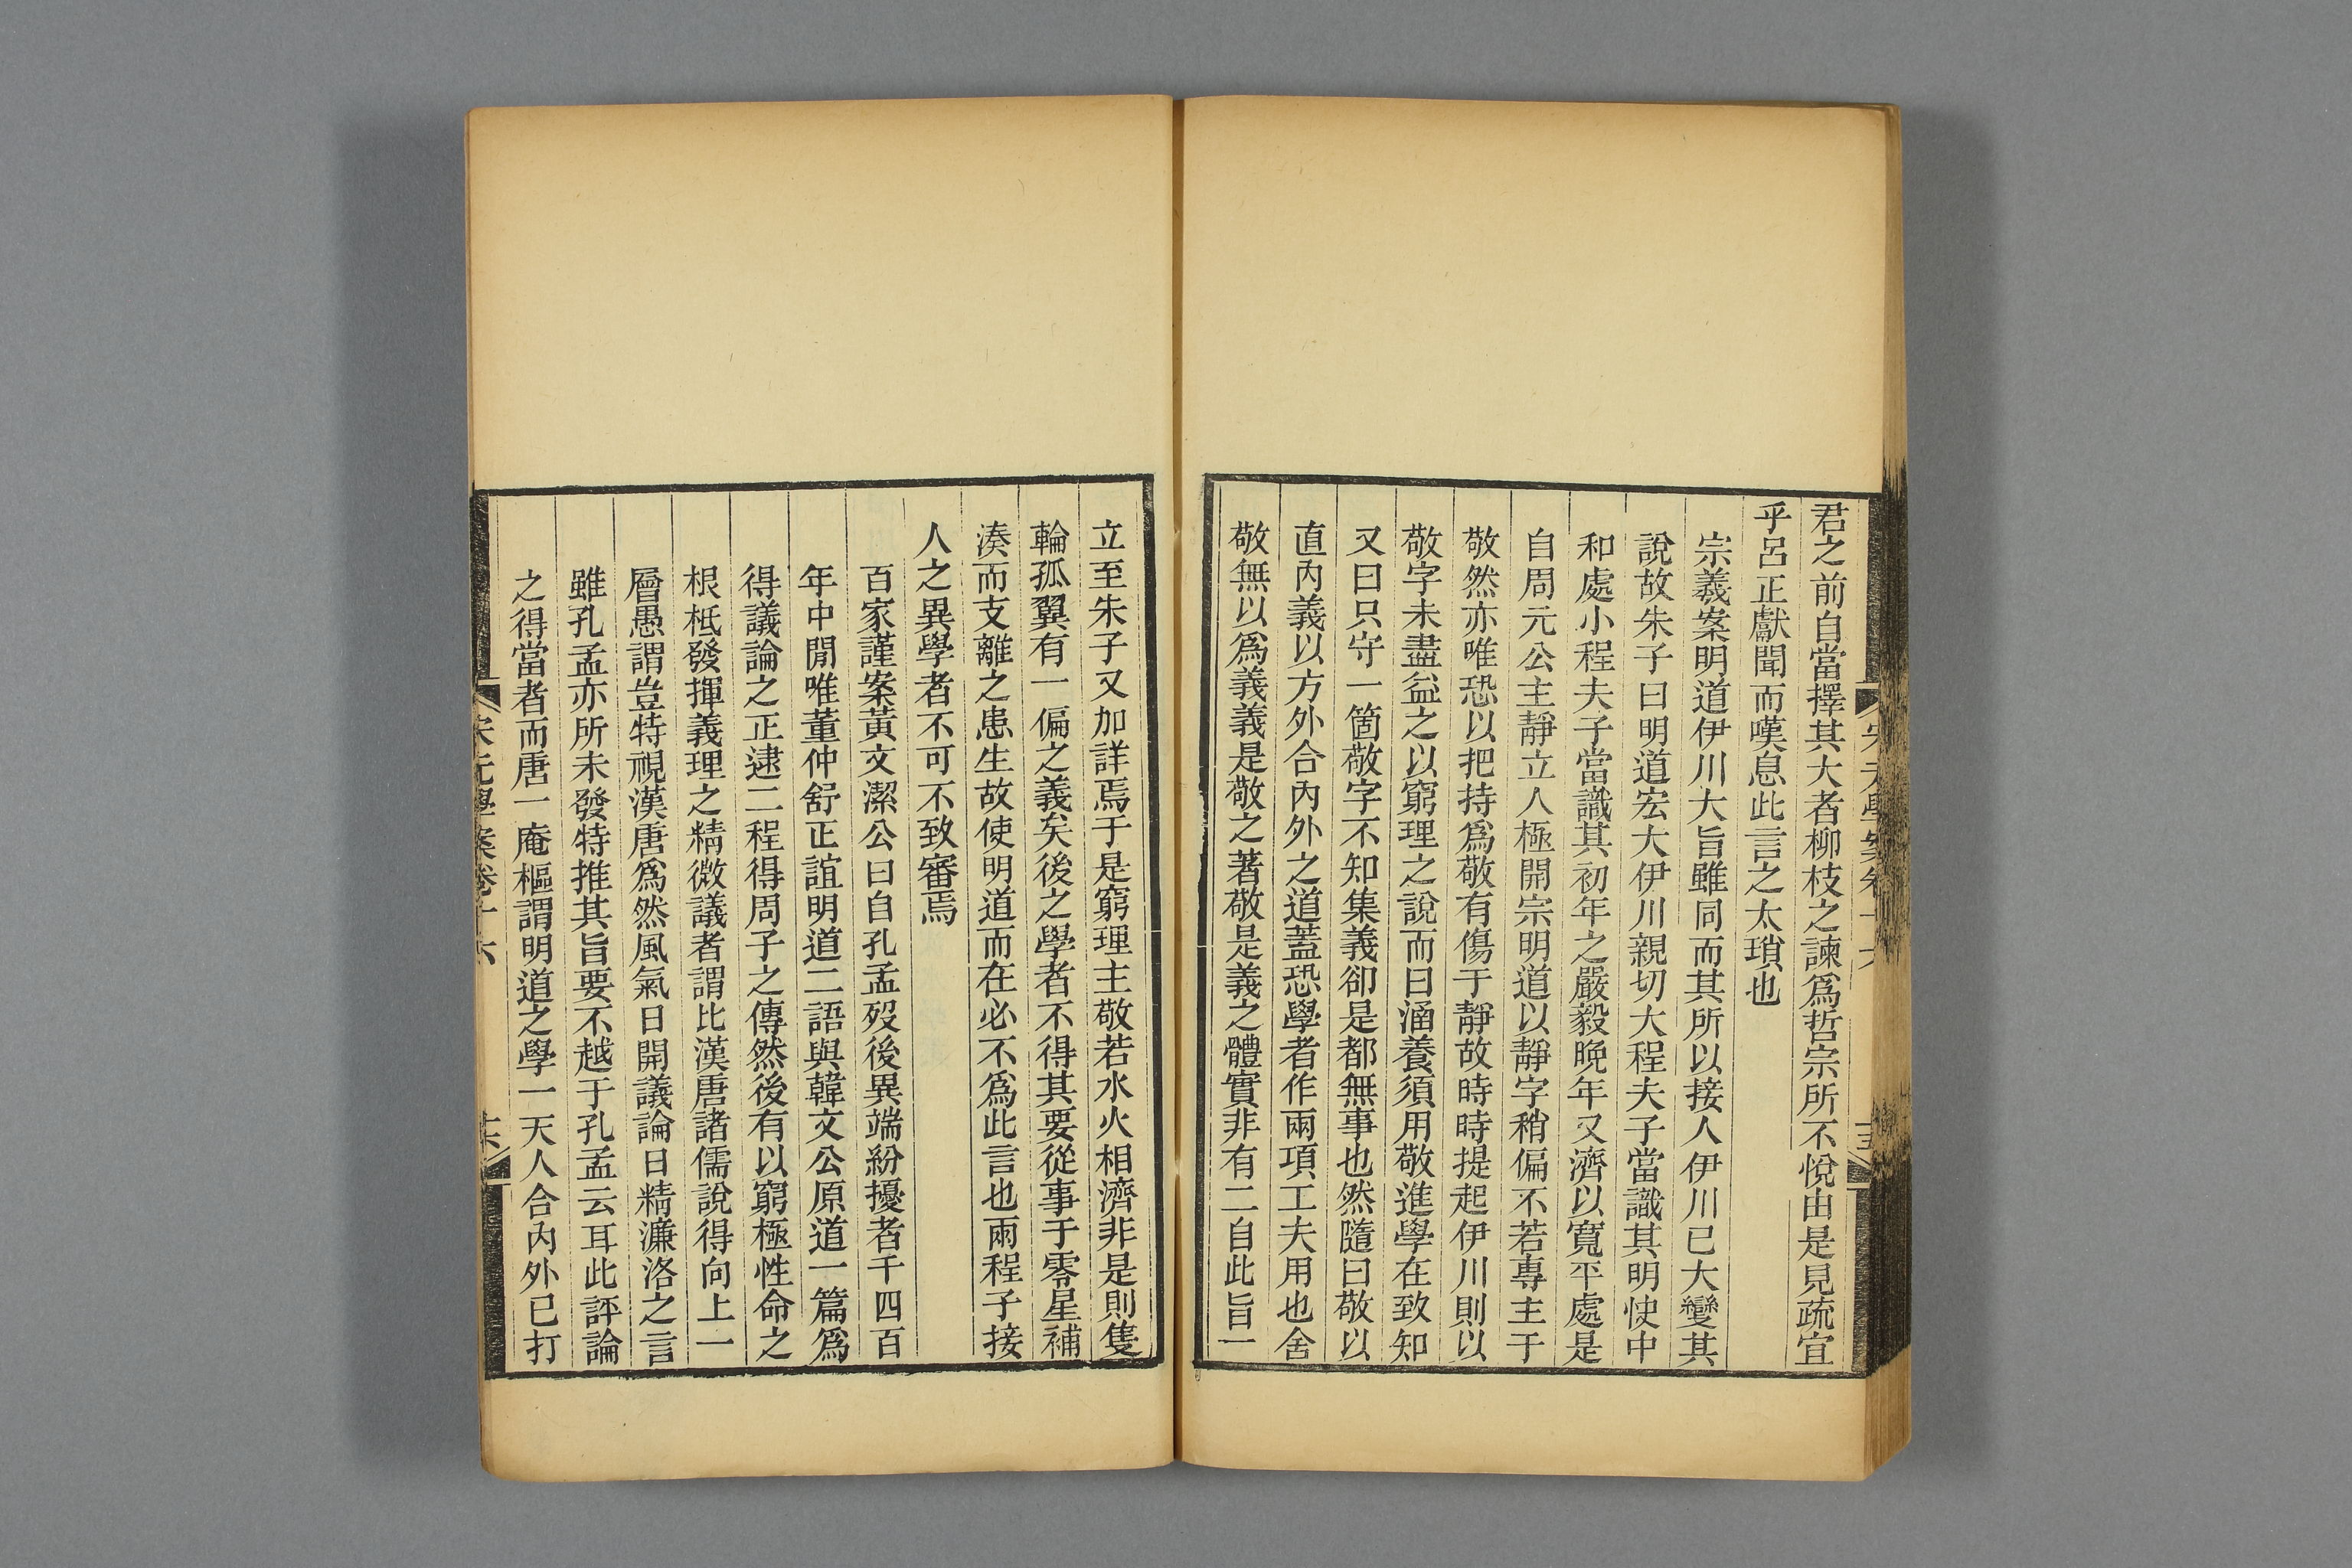 君之前自當擇其大者柳枝之諫爲哲宗所不悅由是見疏宜
乎呂正獻聞而嘆息此言之太瑣也
宗羲案明道伊川大旨雖同而其所以接人伊川已大變其
說故朱子曰明道宏大伊川親切大程夫子當識其明快中
和處小程夫子當識其初年之嚴毅晚年又濟以寬平處是
自周元公主靜立人極開宗明道以靜字稍偏不若專主于
敬然亦唯恐以把持爲敬有傷于靜故時時提起伊川則以
敬字未盡益之以窮理之說而曰涵養須用敬進學在致知
又曰只守一箇敬字不知集義卻是都無事也然隨曰敬以
直內義以方外合內外之道蓋恐學者作兩項工夫用也舍
敬無以爲義義是敬之著敬是義之體實非有二自此旨一
立至朱子又加詳焉于是窮理主敬若水火相濟非是則隻
輪孤翼有一偏之義矣後之學者不得其要從事于零星補
湊而支離之患生故使明道而在必不爲此言也兩程子接
人之異學者不可不致審焉
百家謹案黃文潔公曰自孔孟歿後異端紛擾者千四百
年中閒唯董仲舒正誼明道二語與韓文公原道一篇爲
得議論之正逮二程得周子之傳然後有以窮極性命之
根柢發揮義理之精微議者謂比漢唐諸儒說得向上一
層愚謂豈特視漢唐爲然風氣日開議論日精濂洛之言
雖孔孟亦所未發特推其旨要不越于孔孟云耳此評論
之得當者而唐一庵樞謂明道之學一天人合內外已打
宋元學案卷十六